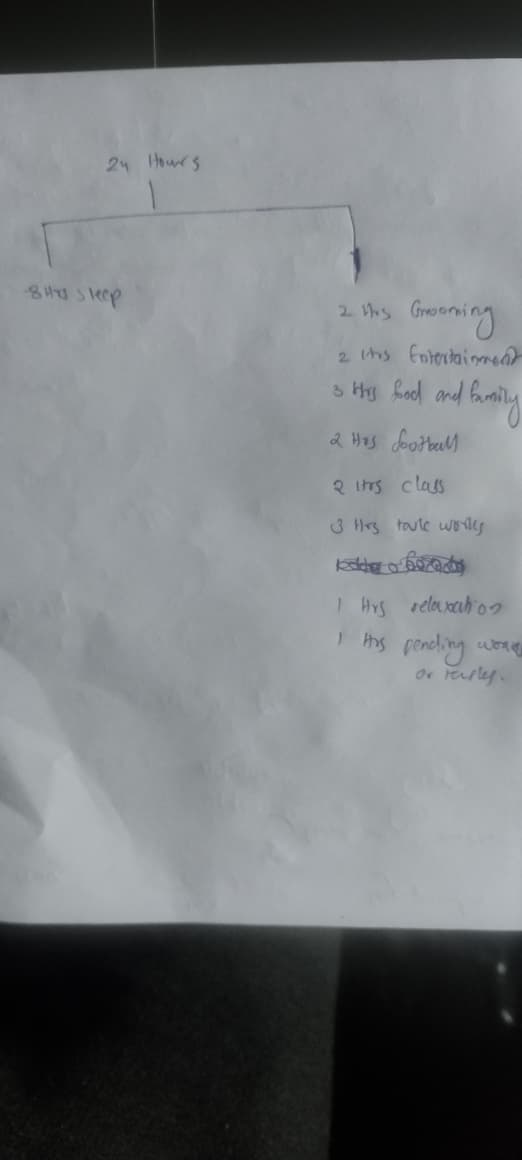 24 Hours
8 Hrs sleep
2 Hrs Grooming
2 Hrs Entertainment
3 Hrs food and family
2 Hrs football
2 Hrs class
3 Hrs works
1 Hrs relaxation
1 Hrs pending works
or tasks.